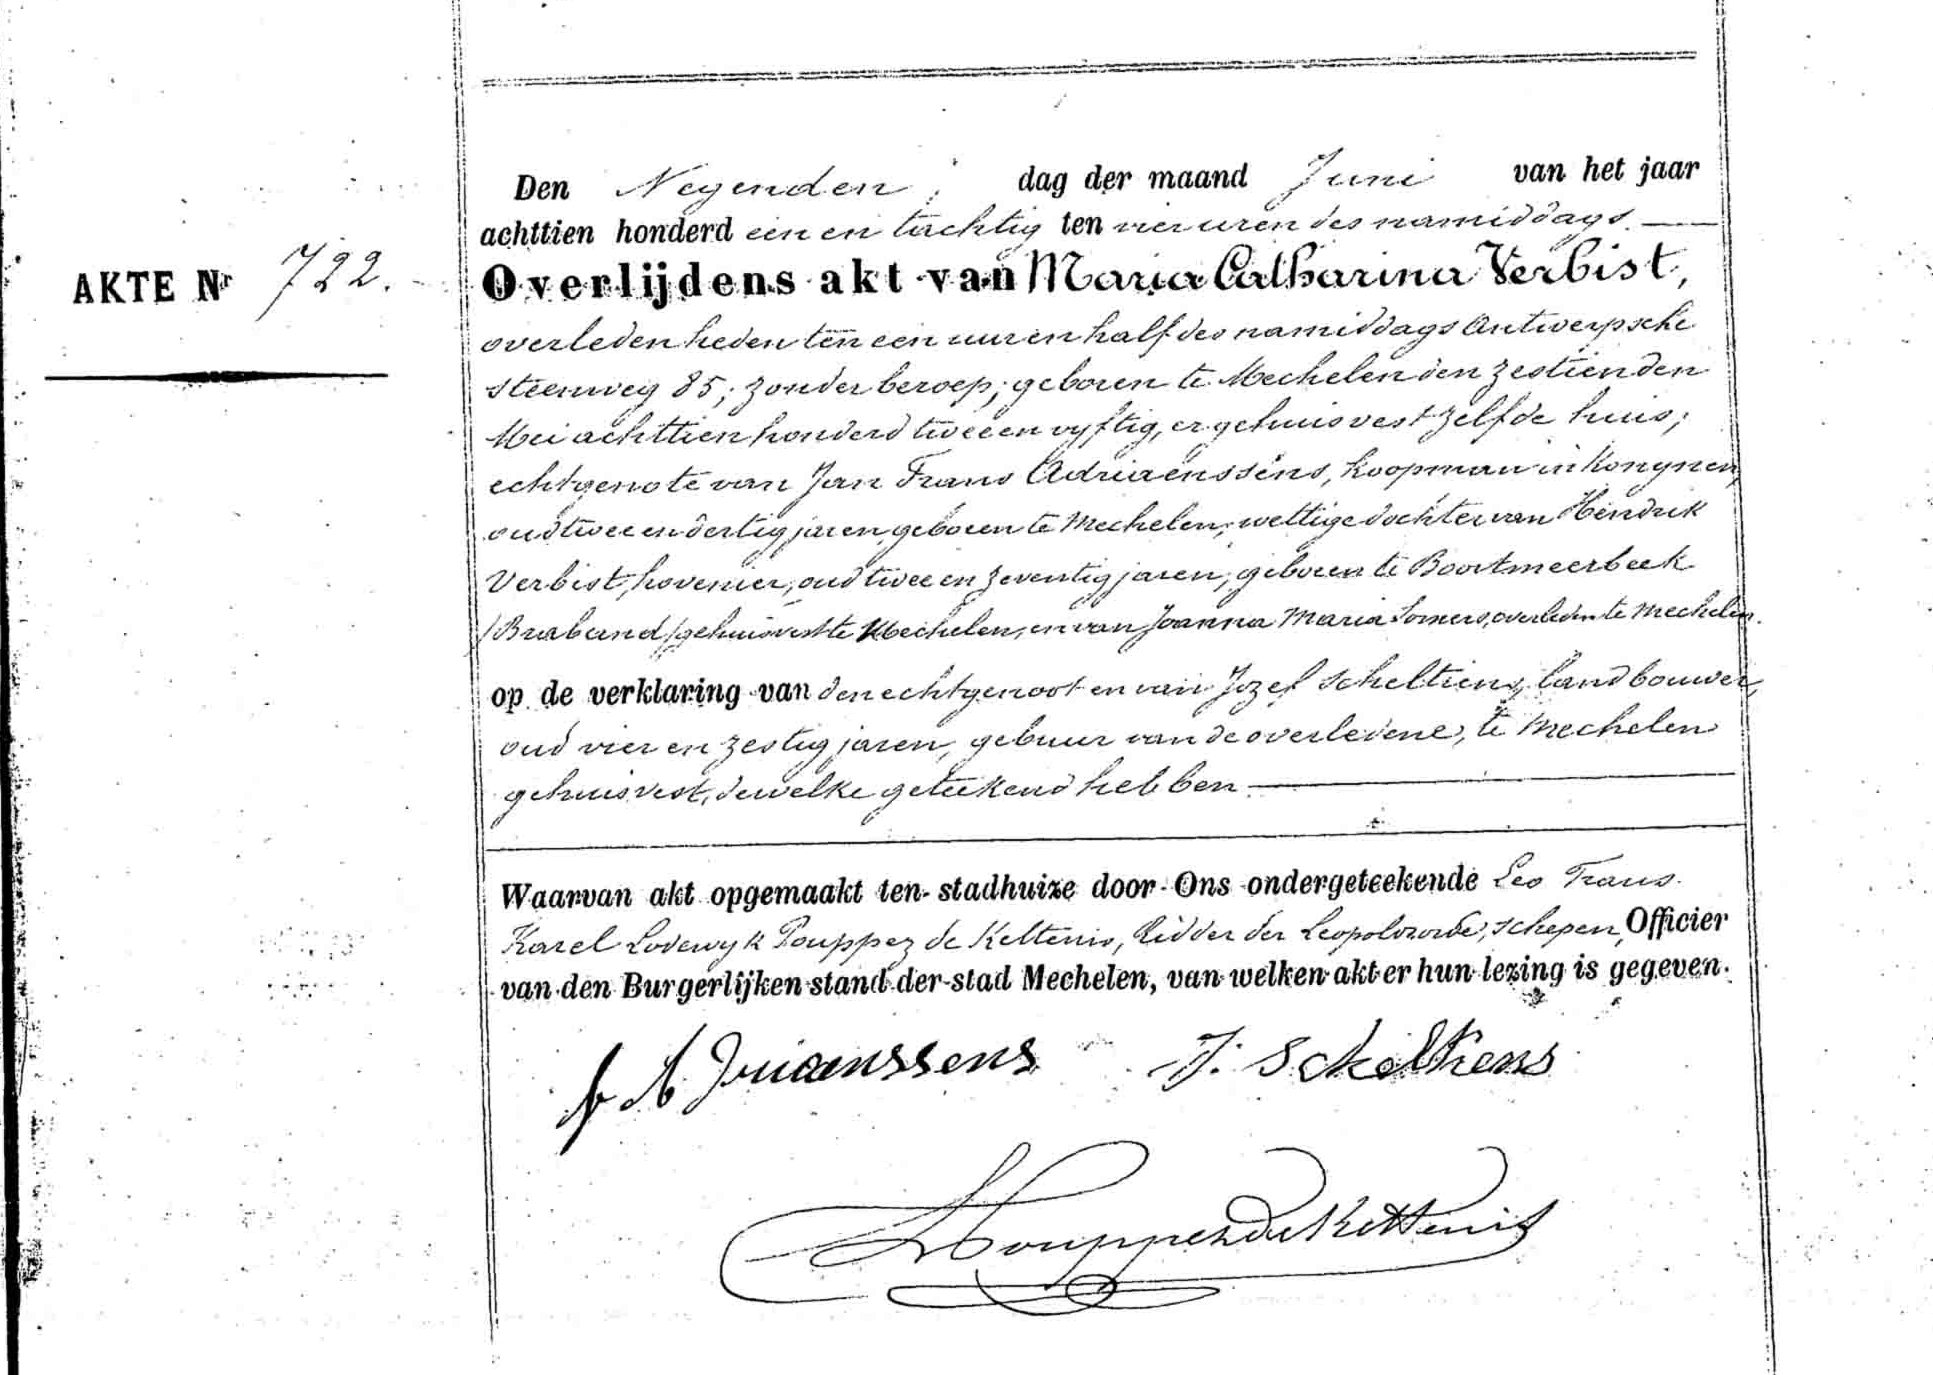 Den Negenden dag der maand Juni van het jaar
achttien honderd een en tachtig ten vier uren des namiddags.
AKTE Nr 722.
Overlijdens akt van Maria Catharina Verbist,
overleden heden ten een uur en half des namiddags Antwerpsche
steenweg 85; zonder beroep; geboren te Mechelen den zestienden
Mei achttien honderd twee en vyftig, er gehuisvest zelfde huis;
echtgenote van Jan Frans Adriaenssens, koopman in konynen,
oud twee en dertig jaren, geboren te Mechelen; wettige dochter van Hendrik
Verbist, hovenier, oud twee en zeventig jaren, geboren te Boortmeerbeek
/Braband/ gehuisvest te Mechelen, en van Joanna Maria Somers, overleden te Mechelen.
op de verklaring van den echtgenoot en van Jozef Scheltiens, landbouwer,
oud vier en zestig jaren, gebuur van de overledene, te Mechelen
gehuisvest, dewelke geteekend hebben
Waarvan akt opgemaakt ten stadhuize door Ons ondergeteekende Leo Frans
Karel Lodewyk Pouppez de Kettenis, Ridder der Leopoldorde, schepen, Officier
van den Burgerlijken stand der stad Mechelen, van welken akt er hun lezing is gegeven.
f Adriaenssens J. Schelkens
Pouppez de Kettenis